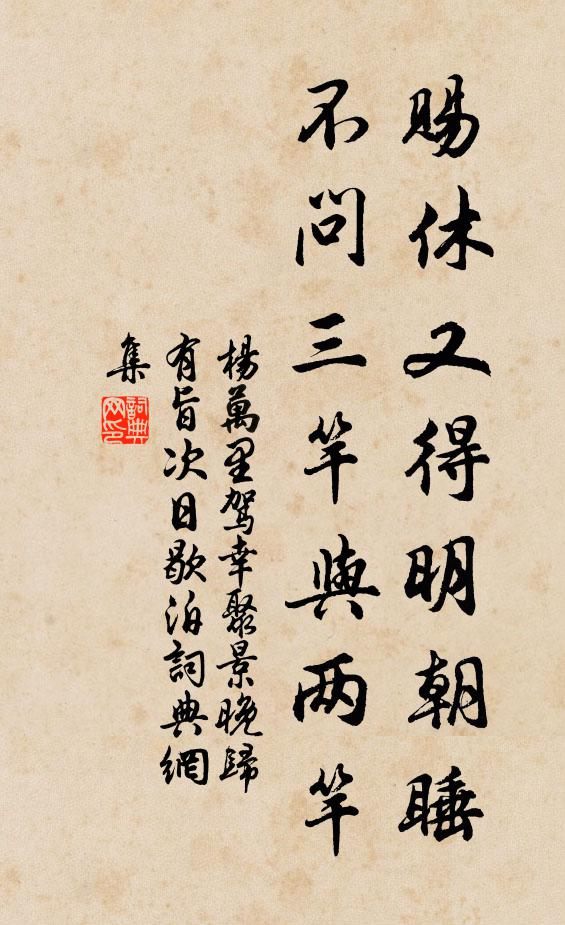 賜休又得明朝睡
不問三竿與两竿
楊萬里駕幸聚景晚歸
有旨次日歇泊詞典網
集
詞典
网印